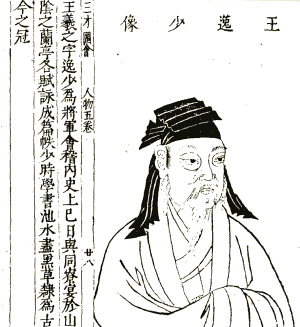 王逸少像
三才圖會 人物五卷 廿八
王羲之字逸少為將軍會稽內史上巳日與同寮宴於山
陰之蘭亭各賦詠成篇帙少時學書池水盡黑草隸為古
今之冠